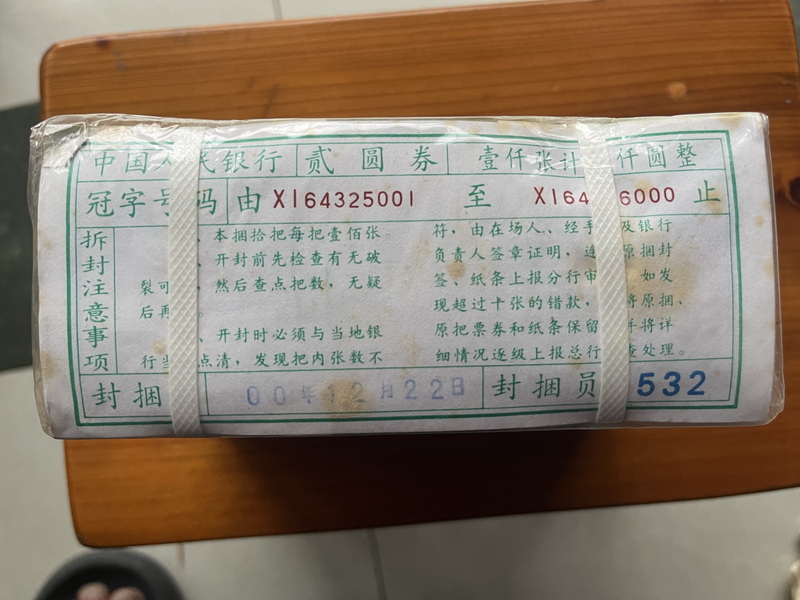 中国人民银行 贰圆券 壹仟张计 仟圆整
冠字号码 由 XI64325001 至 XI64 6000 止
拆封注意事项
、本捆拾把每把壹佰张。
、开封前先检查有无破
裂可 、然后查点把数，无疑
后再
、开封时必须与当地银
行当 点清，发现把内张数不
符，由在场人、经手 及银行
负责人签章证明，连 原捆封
签、纸条上报分行审 如发
现超过十张的错款， 将原捆、
原把票券和纸条保留 并将详
细情况逐级上报总行 查处理。
封捆 00年12月22日 封捆员 532